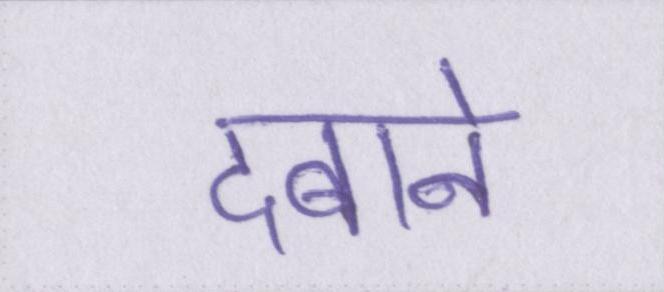 दबाने